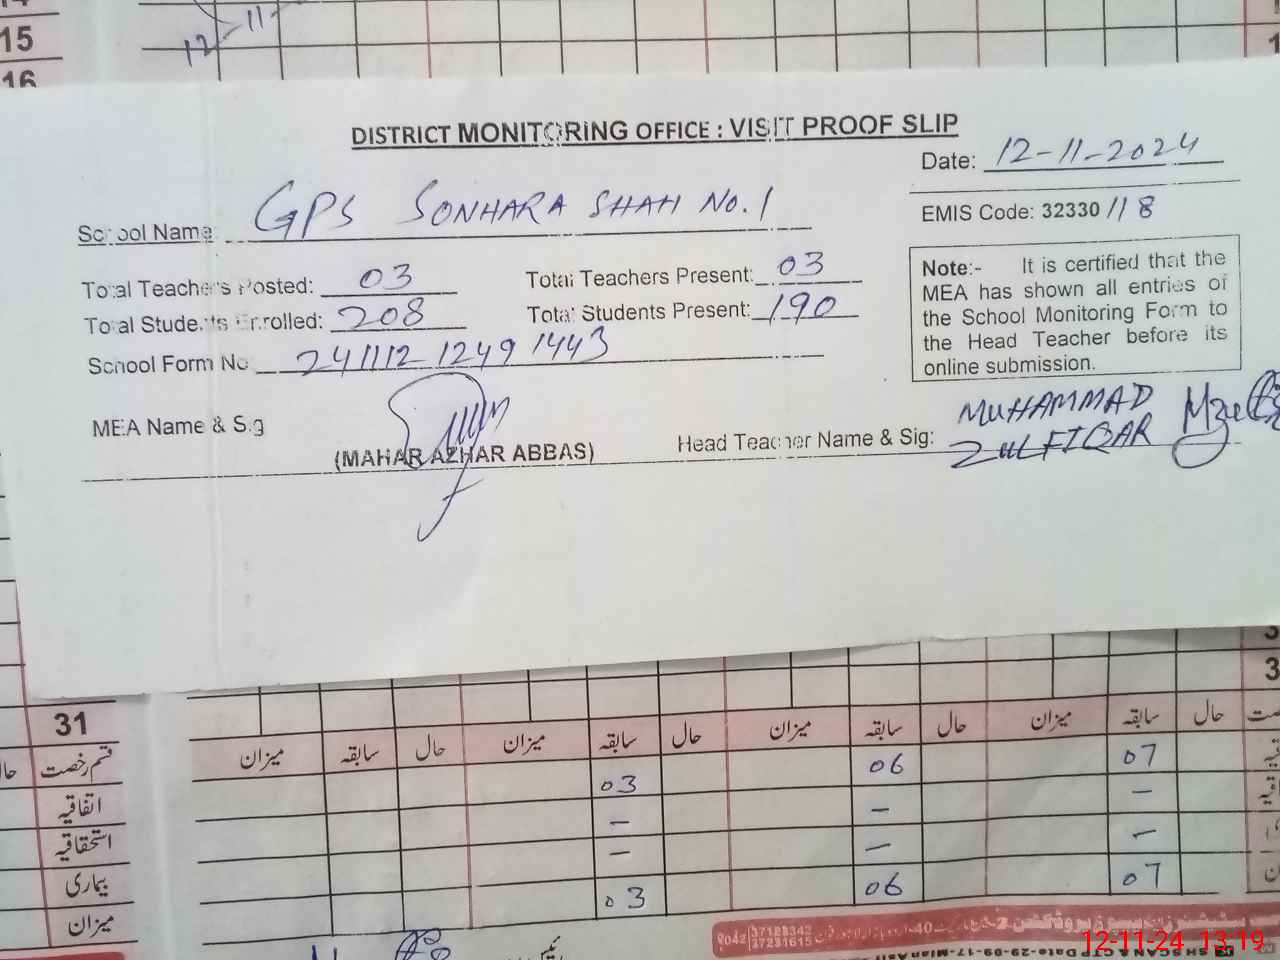 15
16
12-11
DISTRICT MONITORING OFFICE : VISIT PROOF SLIP
Date: 12-11-2024
School Name: GPS SONHARA SHAH NO.1
EMIS Code: 32330118
Total Teachers Posted: 03 Total Teachers Present: 03
Total Students Enrolled: 208 Total Students Present: 190
School Form No 241112 1249 1443
Note:- It is certified that the
MEA has shown all entries of
the School Monitoring Form to
the Head Teacher before its
online submission.
MEA Name & Sig
(MAHAR AZHAR ABBAS)
Head Teacher Name & Sig: MUHAMMAD
ZULFIQAR
31
میزان سابقہ حال میزان سابقہ حال میزان سابقہ حال میزان سابقہ حال
قسم رخصت 03 06 07
اتفاقیہ - - -
استحقاقیہ - - -
بیماری 03 06 07
میزان
042
37123342
37231615
12-11-24 13:19